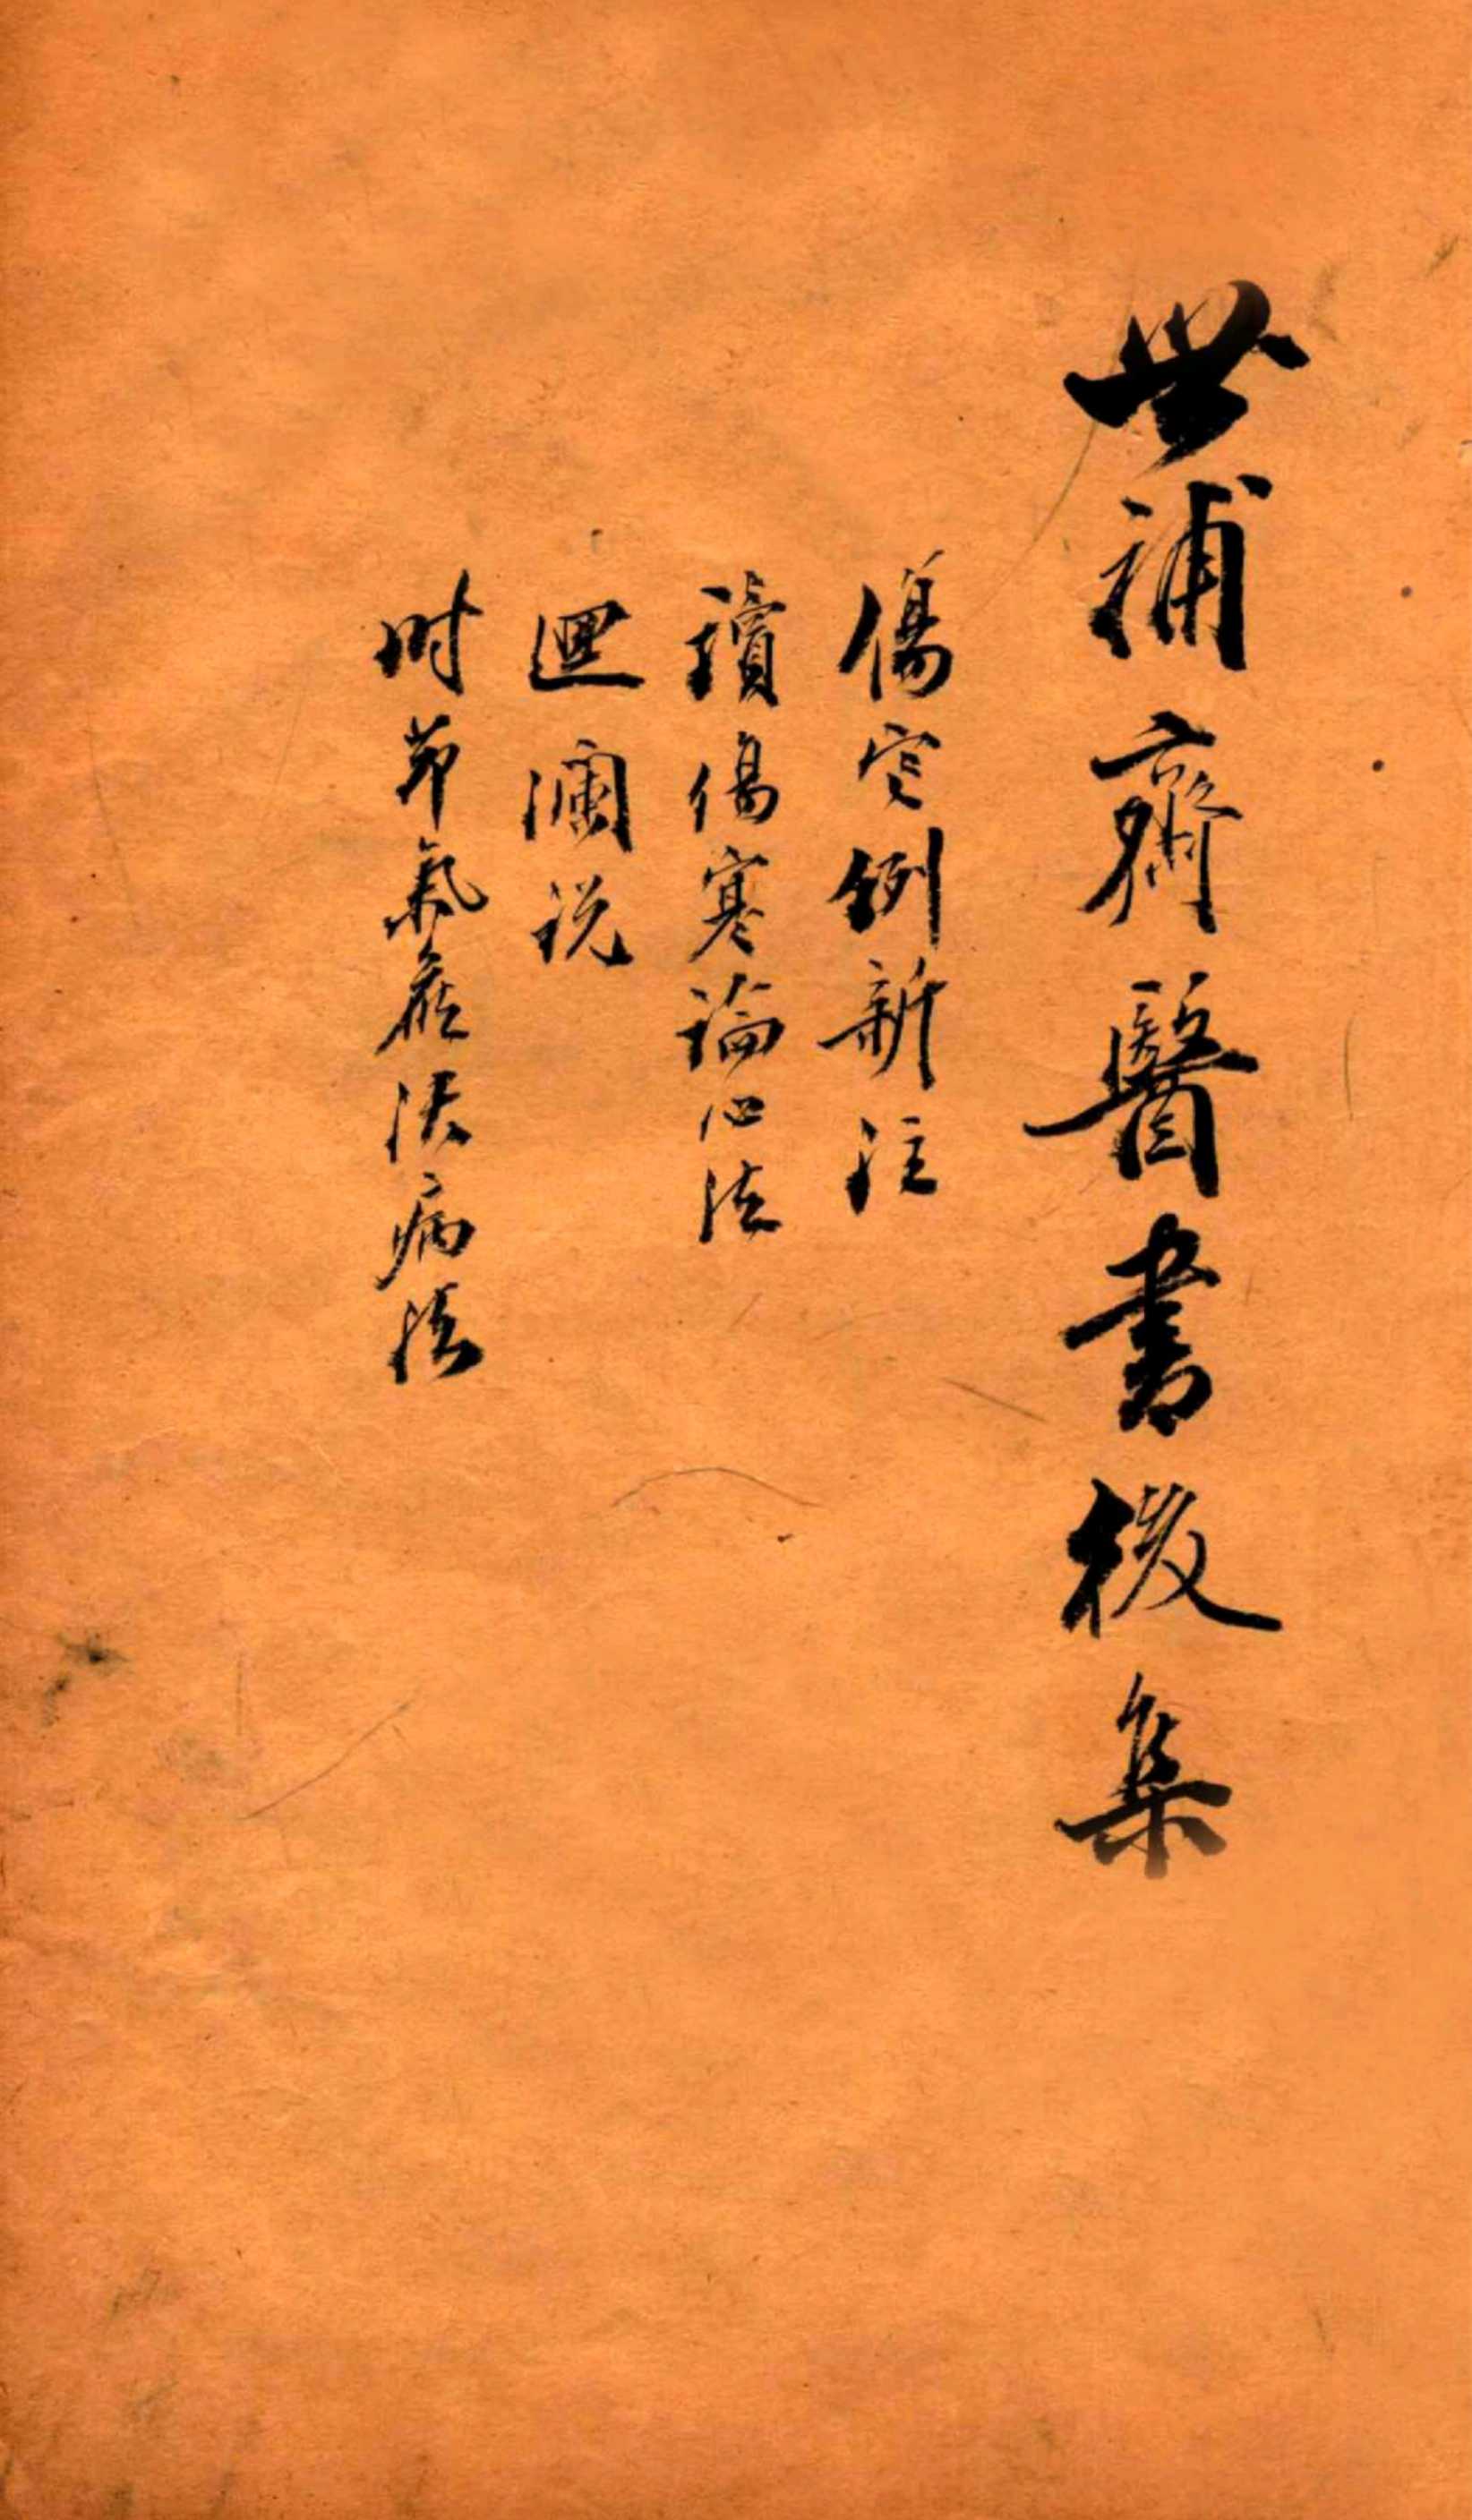 世補齋醫書後集
傷寒例新注
讀傷寒論心法
迴瀾說
时節氣候決病法